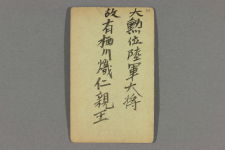 大勲位陸軍大将
故有栖川熾仁親王